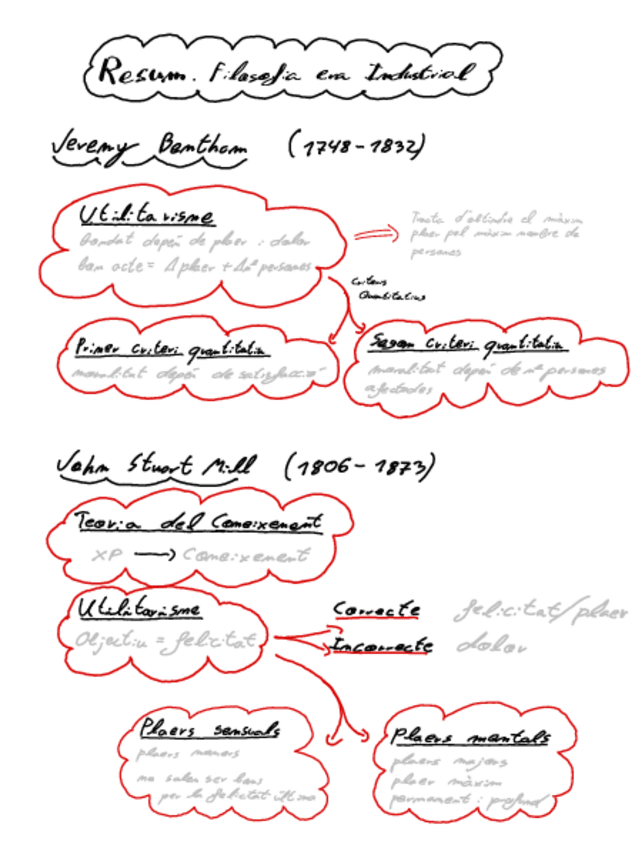 Resum. Filosofia era Industrial
Jeremy Bentham (1748-1832)
Utilitarisme
Bondat depèn de plaer i dolor
bon acte = Δ plaer + Δnº persones
Tracta d'obtindre el màxim
plaer pel màxim nombre de
persones
Criteris
Quantitatius
Primer criteri quantitatiu
moralitat depèn de satisfacció
Segon criteri quantitatiu
moralitat depèn de nº persones
afectades
John Stuart Mill (1806-1873)
Teoria del Coneixement
XP → Coneixement
Utilitarisme
Objectiu = felicitat
Correcte felicitat/plaer
Incorrecte dolor
Plaers sensuals
plaers menors
no solen ser bons
per la felicitat última
Plaers mentals
plaers majors
plaer màxim
permanent i profund